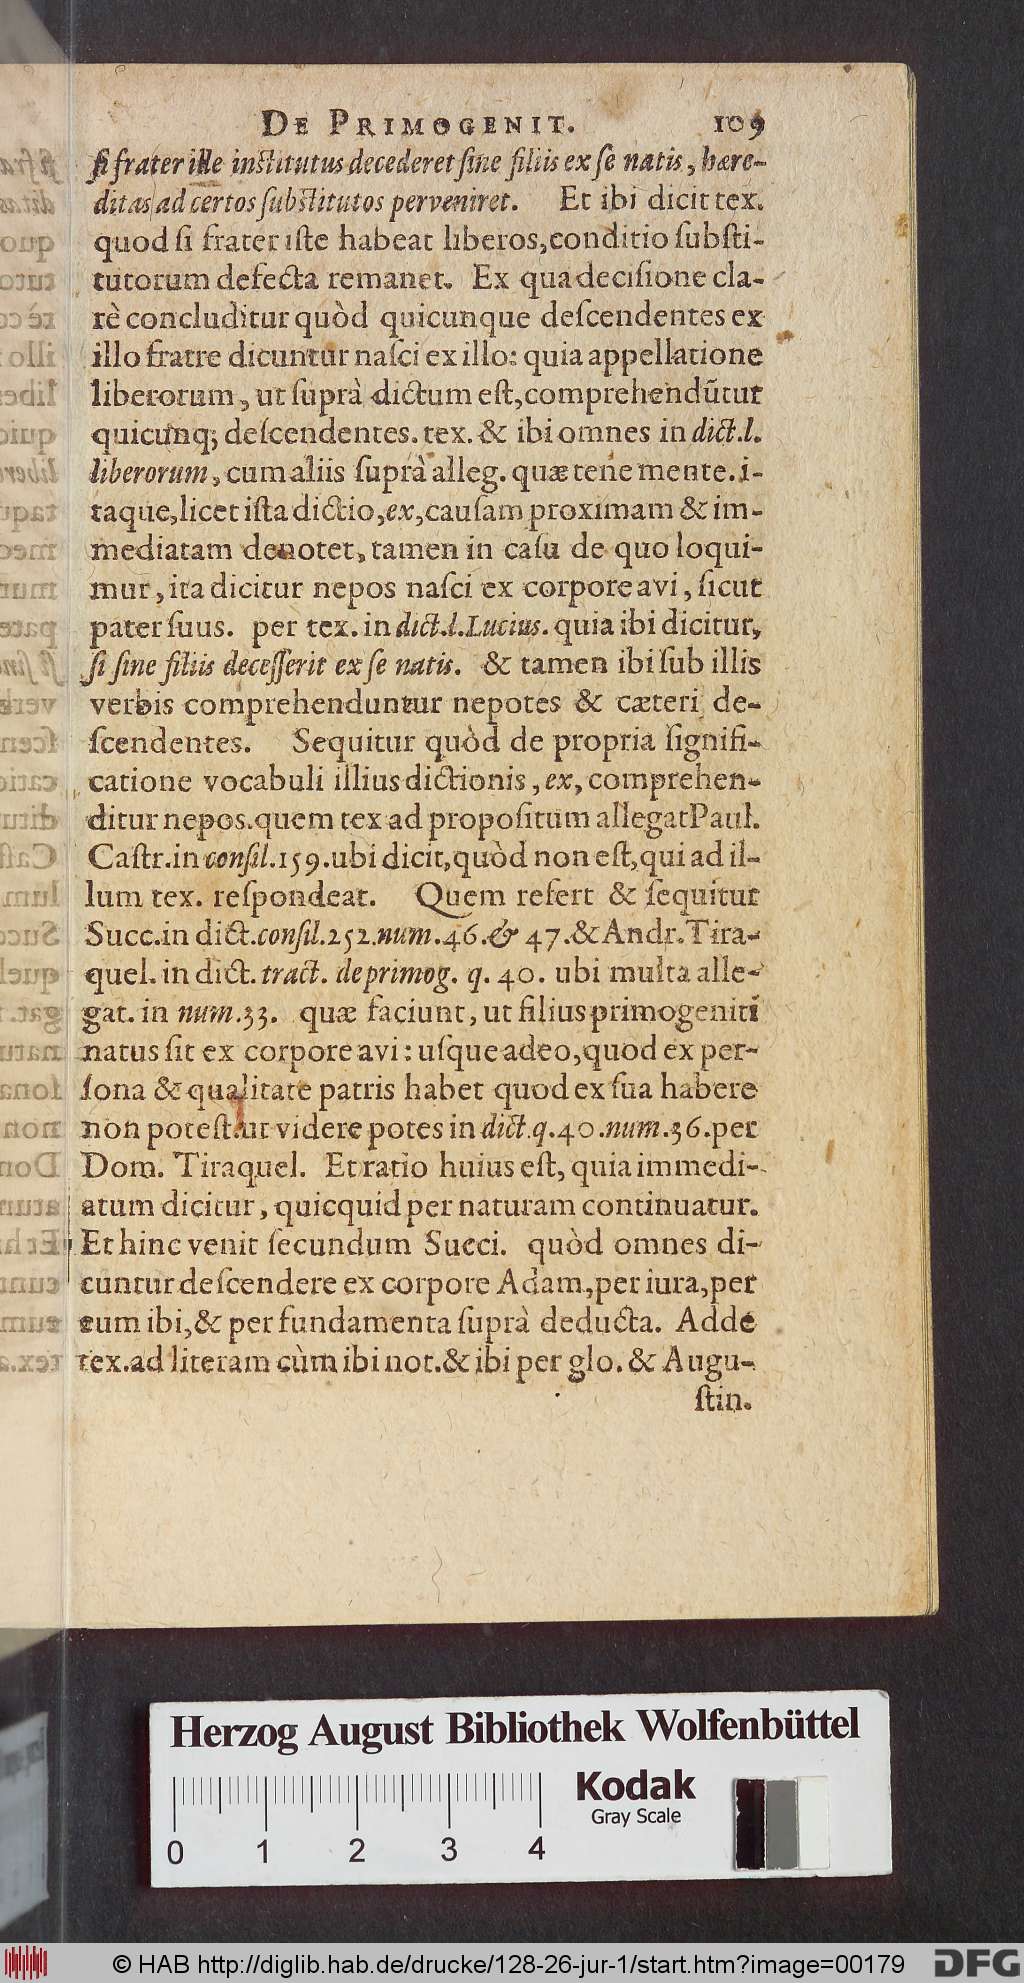 DE PRIMOGENIT. 109
ſi frater ille inſtitutus decederet ſine filiis ex ſe natis, hære-
ditas ad certos ſubſtitutos perveniret. Et ibi dicit tex.
quod ſi frater iſte habeat liberos, conditio ſubſti-
tutorum defecta remanet. Ex qua deciſione cla-
rè concluditur quòd quicunque deſcendentes ex
illo fratre dicuntur naſci ex illo: quia appellatione
liberorum, ut ſuprà dictum eſt, comprehendũtur
quicunq; deſcendentes. tex. & ibi omnes in dict. l.
liberorum, cum aliis ſuprà alleg. quæ tene mente. i-
taque, licet iſta dictio, ex, cauſam proximam & im-
mediatam denotet, tamen in caſu de quo loqui-
mur, ita dicitur nepos naſci ex corpore avi, ſicut
pater ſuus. per tex. in dict. l. Lucius. quia ibi dicitur,
ſi ſine filiis deceſſerit ex ſe natis. & tamen ibi ſub illis
verbis comprehenduntur nepotes & cæteri de-
ſcendentes. Sequitur quòd de propria ſignifi-
catione vocabuli illius dictionis, ex, comprehen-
ditur nepos. quem tex ad propoſitum allegat Paul.
Caſtr. in conſil. 159. ubi dicit, quòd non eſt, qui ad il-
lum tex. reſpondeat. Quem refert & ſequitur
Succ. in dict. conſil. 252. num. 46. & 47. & Andr. Tira-
quel. in dict. tract. de primog. q. 40. ubi multa alle-
gat. in num. 33. quæ faciunt, ut filius primogeniti
natus ſit ex corpore avi: uſque adeo, quod ex per-
ſona & qualitate patris habet quod ex ſua habere
non poteſt. ut videre potes in dict. q. 40. num. 36. per
Dom. Tiraquel. Et ratio huius eſt, quia immedi-
atum dicitur, quicquid per naturam continuatur.
Et hinc venit ſecundum Succi. quòd omnes di-
cuntur deſcendere ex corpore Adam, per iura, per
eum ibi, & per fundamenta ſuprà deducta. Adde
tex. ad literam cùm ibi not. & ibi per glo. & Augu-
ſtin.
Herzog August Bibliothek Wolfenbüttel
Kodak
Gray Scale
0 1 2 3 4
© HAB http://diglib.hab.de/drucke/128-26-jur-1/start.htm?image=00179
DFG